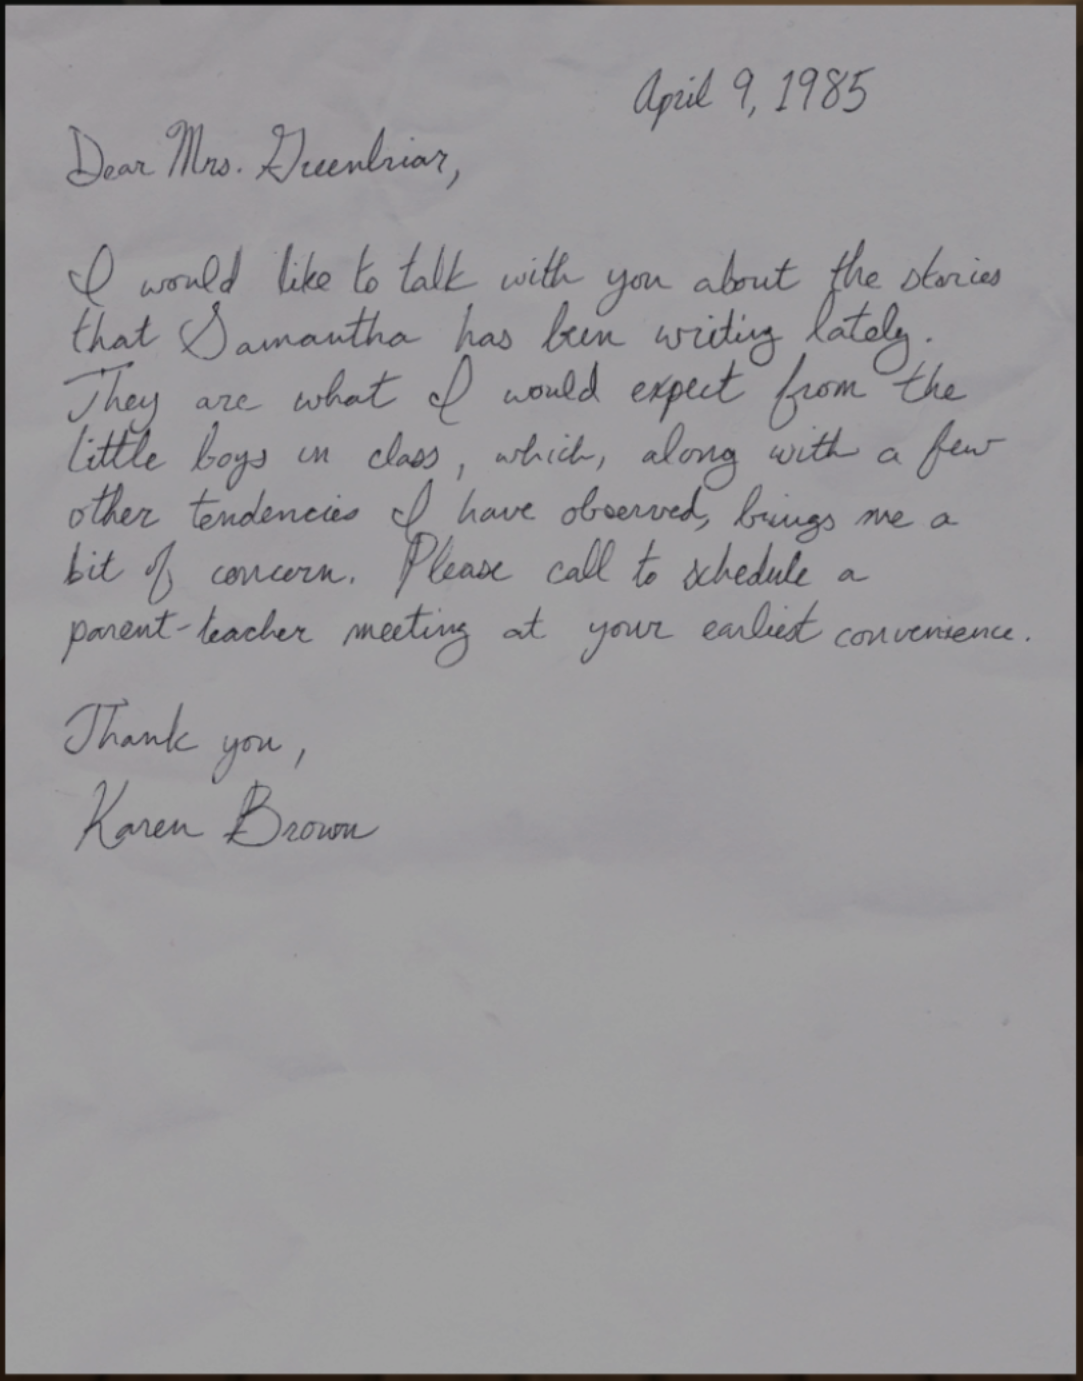 April 9, 1985
Dear Mrs. Greenbriar,
I would like to talk with you about the stories
that Samantha has been writing lately.
They are what I would expect from the
little boys in class, which, along with a few
other tendencies I have observed, brings me a
bit of concern. Please call to schedule a
parent-teacher meeting at your earliest convenience.
Thank you,
Karen Brown